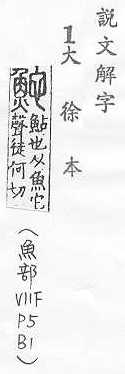 說文解字
1大徐本
鮀
鮎也从魚它
聲徒何切
(魚部
VIIF
P5
B1)